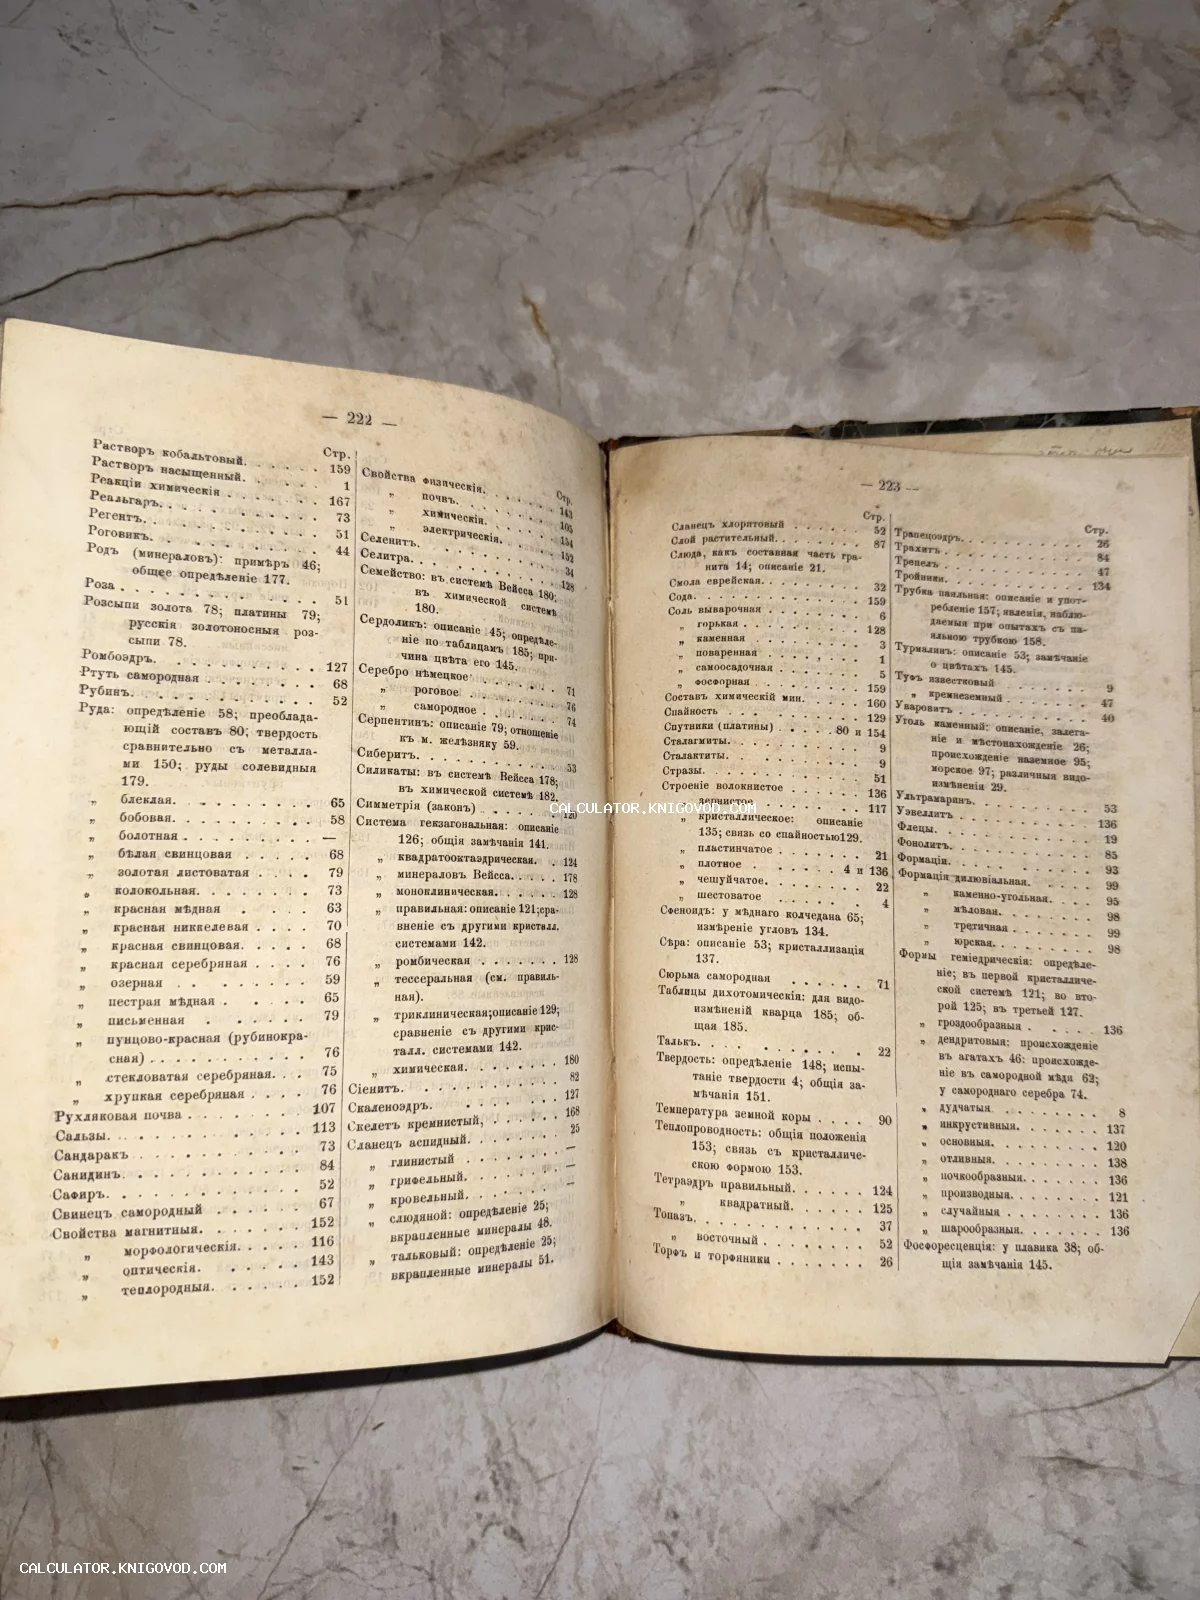 — 222 —
Стр.
Растворъ кобальтовый. . . . . . 159
Растворъ насыщенный. . . . . . 1
Реакціи химическія . . . . . . . 167
Реальгаръ. . . . . . . . . . . 73
Регентъ. . . . . . . . . . . . 51
Роговикъ. . . . . . . . . . . . 44
Родъ (минераловъ): примѣръ 46;
общее опредѣленіе 177.
Роза . . . . . . . . . . . . . 51
Розсыпи золота 78; платины 79;
русскія золотоносныя роз-
сыпи 78.
Ромбоэдръ. . . . . . . . . . . 127
Ртуть самородная . . . . . . . 68
Рубинъ. . . . . . . . . . . . 52
Руда: опредѣленіе 58; преоблада-
ющій составъ 80; твердость
сравнительно съ металла-
ми 150; руды солевидныя
179.
„ блеклая. . . . . . . . . 65
„ бобовая. . . . . . . . . 58
„ болотная . . . . . . . . —
„ бѣлая свинцовая . . . . . 68
„ золотая листоватая . . . . 79
„ колокольная. . . . . . . 73
„ красная мѣдная . . . . 63
„ красная никкелевая . . . . 70
„ красная свинцовая. . . . . 68
„ красная серебряная . . . . 76
„ озерная . . . . . . . . 59
„ пестрая мѣдная . . . . . 65
„ письменная . . . . . . 79
„ пунцово-красная (рубинокра-
сная) . . . . . . . . . . 76
„ стекловатая серебряная. . . 75
„ хрупкая серебряная . . . . 76
Рухляковая почва . . . . . . . 107
Сальзы. . . . . . . . . . . . 113
Сандаракъ . . . . . . . . . . 73
Санидинъ. . . . . . . . . . . 84
Сафиръ. . . . . . . . . . . . 52
Свинецъ самородный . . . . . . 67
Свойства магнитныя. . . . . . . 152
„ морфологическія. . . . . 116
„ оптическія. . . . . . . 143
„ теплородныя. . . . . . 152
Стр.
Свойства физическія. . . . . . 143
„ почвъ. . . . . . . . 105
„ химическія. . . . . . 154
„ электрическія. . . . . 152
Селенитъ. . . . . . . . . . . 34
Селитра. . . . . . . . . . . 128
Семейство: въ системѣ Вейсса 180;
въ химической системѣ
180.
Сердоликъ: описаніе 45; опредѣле-
ніе по таблицамъ 185; при-
чина цвѣта его 145.
Серебро нѣмецкое . . . . . . . 71
„ роговое . . . . . . . 76
„ самородное . . . . . . 74
Серпентинъ: описаніе 79; отношеніе
къ м. желѣзняку 59.
Сиберитъ. . . . . . . . . . . 53
Силикаты: въ системѣ Вейсса 178;
въ химической системѣ 182.
Симметрія (законъ) . . . . . . 120
Система гекзагональная: описаніе
126; общія замѣчанія 141.
„ квадратооктаэдрическая. . 124
„ минераловъ Вейсса. . . . 178
„ моноклиническая. . . . . 128
„ правильная: описаніе 121; сра-
вненіе съ другими кристалл.
системами 142.
„ ромбическая . . . . . . 128
„ тессеральная (см. правиль-
ная).
„ триклиническая; описаніе 129;
сравненіе съ другими крис-
талл. системами 142.
„ химическая. . . . . . . 180
Сіенитъ. . . . . . . . . . . 82
Скаленоэдръ. . . . . . . . . 127
Скелетъ кремнистый, . . . . . 168
Сланецъ аспидный. . . . . . . 25
„ глинистый . . . . . . —
„ грифельный. . . . . . —
„ кровельный. . . . . . —
„ слюдяной: опредѣленіе 25;
вкрапленные минералы 48.
„ тальковый: опредѣленіе 25;
вкрапленные минералы 51.
— 223 —
Стр.
Сланецъ хлоритовый . . . . . . 52
Слой растительный. . . . . . . 87
Слюда, какъ составная часть гра-
нита 14; описаніе 21.
Смола еврейская. . . . . . . . 32
Сода. . . . . . . . . . . . . 159
Соль выварочная . . . . . . . 6
„ горькая . . . . . . . . 128
„ каменная . . . . . . . . 3
„ поваренная . . . . . . . 1
„ самоосадочная . . . . . . 5
„ фосфорная . . . . . . . 159
Составъ химическій мин. . . . . 160
Спайность . . . . . . . . . . 129
Спутники (платины) . . . . 80 и 154
Сталагмиты. . . . . . . . . . 9
Сталактиты. . . . . . . . . . 9
Стразы. . . . . . . . . . . . 51
Строеніе волокнистое . . . . . 136
„ зернистое . . . . . . 117
„ кристаллическое: описаніе
135; связь со спайностью 129.
„ пластинчатое . . . . . . 21
„ плотное . . . . . . 4 и 136
„ чешуйчатое. . . . . . . 22
„ шестоватое . . . . . . 4
Сфеноидъ: у мѣднаго колчедана 65;
измѣреніе угловъ 134.
Сѣра: описаніе 53; кристаллизація
137.
Сюрьма самородная . . . . . . 71
Таблицы дихотомическія: для видо-
измѣненій кварца 185; об-
щая 185.
Талькъ. . . . . . . . . . . . 22
Твердость: опредѣленіе 148; испы-
таніе твердости 4; общія за-
мѣчанія 151.
Температура земной коры . . . . 90
Теплопроводность: общія положенія
153; связь съ кристалличе-
скою формою 153.
Тетраэдръ правильный. . . . . . 124
„ квадратный. . . . . . 125
Топазъ. . . . . . . . . . . . 37
„ восточный . . . . . . . 52
Торфъ и торфяники . . . . . . 26
Стр.
Трапецоэдръ. . . . . . . . . . 26
Трахитъ . . . . . . . . . . . 84
Трепелъ . . . . . . . . . . . 47
Тройники. . . . . . . . . . . 134
Трубка паяльная: описаніе и упот-
ребленіе 157; явленія, наблю-
даемыя при опытахъ съ па-
яльною трубкою 158.
Турмалинъ: описаніе 53; замѣчаніе
о цвѣтахъ 145.
Туфъ известковый . . . . . . . 9
„ кремнеземный . . . . . . 47
Уваровитъ . . . . . . . . . . 40
Уголь каменный: описаніе, залега-
ніе и мѣстонахожденіе 26;
происхожденіе наземное 95;
морское 97; различныя видо-
измѣненія 29.
Ультрамаринъ. . . . . . . . . 53
Уэвеллитъ . . . . . . . . . . 136
Флецы. . . . . . . . . . . . 19
Фонолитъ. . . . . . . . . . . 85
Формаціи. . . . . . . . . . . 93
Формація дилювіальная. . . . . 99
„ каменно-угольная. . . . 95
„ мѣловая. . . . . . . . 98
„ третичная . . . . . . 99
„ юрская. . . . . . . . 98
Формы геміедрическія: опредѣле-
ніе; въ первой кристалличе-
ской системѣ 121; во вто-
рой 125; въ третьей 127.
„ гроздообразныя . . . . . 136
„ дендритовыя: происхожденіе
въ агатахъ 46: происхожде-
ніе въ самородной мѣди 62;
у самороднаго серебра 74.
„ дудчатыя . . . . . . . 8
„ инкрустивныя. . . . . . 137
„ основныя. . . . . . . . 120
„ отливныя. . . . . . . . 138
„ почкообразныя. . . . . . 136
„ производныя. . . . . . 121
„ случайныя . . . . . . . 136
„ шарообразныя. . . . . . 136
Фосфоресценція: у плавика 38; об-
щія замѣчанія 145.
CALCULATOR.KNIGOVOD.COM
CALCULATOR.KNIGOVOD.COM